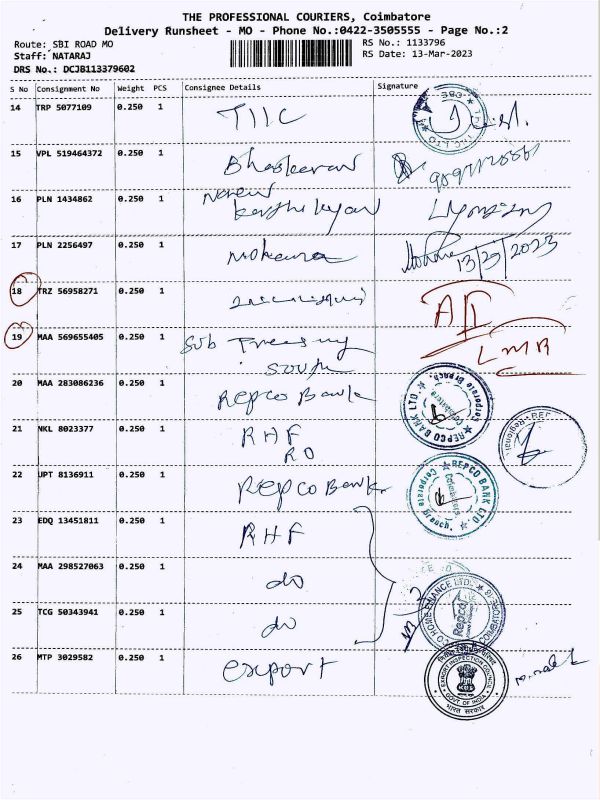 THE PROFESSIONAL COURIERS, Coimbatore
Delivery Runsheet - MO - Phone No.:0422-3505555 - Page No.:2
Route: SBI ROAD MO
RS No.: 1133796
Staff: NATARAJ
RS Date: 13-Mar-2023
DRS No.: DCJB113379602
S No Consignment No Weight PCS Consignee Details Signature
14 TRP 5077109 0.250 1 TIIC
15 VPL 519464372 0.250 1 Bhaskaran
16 PLN 1434862 0.250 1
17 PLN 2256497 0.250 1 13/3/2023
18 TRZ 56958271 0.250 1
19 MAA 569655405 0.250 1 Sub Treasury
South
LMR
20 MAA 283086236 0.250 1 Repco Bank
REPCO BANK LTD.
21 NKL 8023377 0.250 1 RHF
RO
22 UPT 8136911 0.250 1 Repco Bank
REPCO BANK LTD.
Corporate Branch,
23 EDQ 13451811 0.250 1 RHF
24 MAA 298527063 0.250 1 do
25 TCG 50343941 0.250 1 do
HOME FINANCE LTD.
Repco
COIMBATORE
26 MTP 3029582 0.250 1 export
EXPORT INSPECTION COUNCIL
GOVT. OF INDIA
भारत सरकार